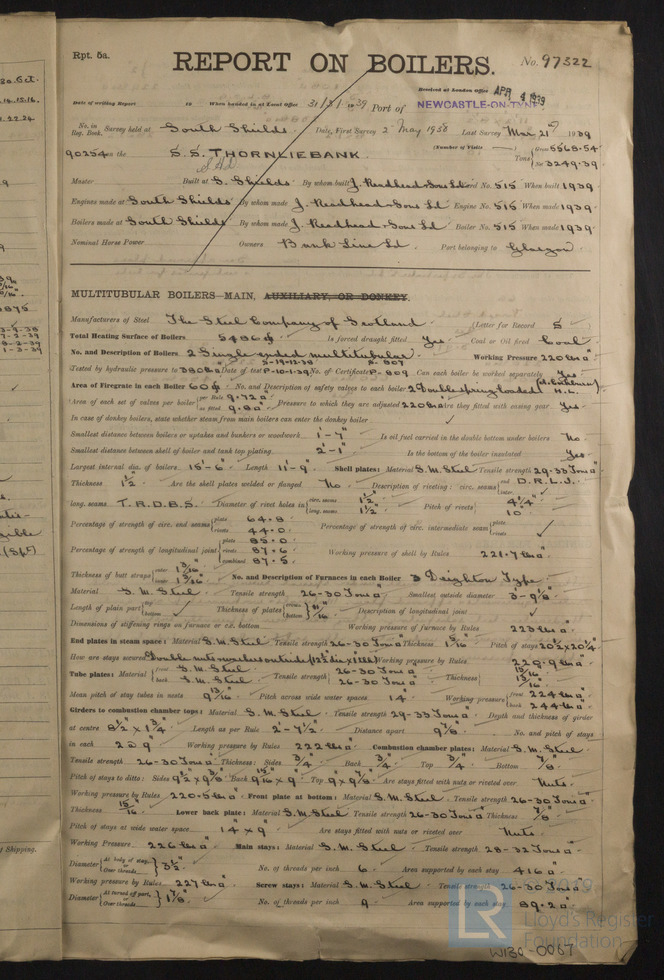 Rpt. 5a.
REPORT ON BOILERS.
No. 97322
Received at London Office APR 4 1939
Date of writing Report 19 When handed in at Local Office 31/3/1939 Port of NEWCASTLE-ON-TYNE
No. in Reg. Book. Survey held at South Shields. Date, First Survey 2nd May 1938 Last Survey Mar 21st 1939
(Number of Visits )
90254 on the S.S. THORNLIEBANK Tons Gross 5568.54 Net 3249.39
Master Built at S. Shields By whom built J. Readhead & Sons Ld Yard No. 515 When built 1939
Engines made at South Shields By whom made J. Readhead & Sons Ld Engine No. 515 When made 1939
Boilers made at South Shields By whom made J. Readhead & Sons Ld Boiler No. 515 When made 1939
Nominal Horse Power Owners Bank Line Ld. Port belonging to Glasgow
MULTITUBULAR BOILERS—MAIN, AUXILIARY, OR DONKEY.
Manufacturers of Steel The Steel Company of Scotland (Letter for Record S )
Total Heating Surface of Boilers 5496 ф Is forced draught fitted Yes Coal or Oil fired Coal
No. and Description of Boilers 2 Single ended multitubular Working Pressure 220 lbs □"
Tested by hydraulic pressure to 380 lbs Date of test S-19-12-38 P-10-1-39 No. of Certificate S-807 P-809 Can each boiler be worked separately Yes
Area of Firegrate in each Boiler 60 ф No. and Description of safety valves to each boiler 2 Double spring loaded H.L.
Area of each set of valves per boiler per Rule 9.72 □" as fitted 9.80 □" Pressure to which they are adjusted 220 lbs □" Are they fitted with easing gear Yes
In case of donkey boilers, state whether steam from main boilers can enter the donkey boiler ✓
Smallest distance between boilers or uptakes and bunkers or woodwork 1'-7" Is oil fuel carried in the double bottom under boilers No
Smallest distance between shell of boiler and tank top plating 2'-1" Is the bottom of the boiler insulated Yes
Largest internal dia. of boilers 15'-6" Length 11'-9" Shell plates: Material S.M. Steel Tensile strength 29-33 Tons □"
Thickness 1½" Are the shell plates welded or flanged No Description of riveting: circ. seams end D.R.L.J. inter.
long. seams T.R.D.B.S. Diameter of rivet holes in circ. seams 1½" long. seams 1½" Pitch of rivets 4¼" 10"
Percentage of strength of circ. end seams plate 64.8 rivets 44.0 Percentage of strength of circ. intermediate seam plate rivets
Percentage of strength of longitudinal joint plate 85.0 rivets 87.6 combined 87.5 Working pressure of shell by Rules 221.7 lbs □"
Thickness of butt straps outer 1 3/16" inner 1 5/16" No. and Description of Furnaces in each Boiler 3 Deighton Type
Material S.M. Steel Tensile strength 26-30 Tons □" Smallest outside diameter 3'-9⅛"
Length of plain part top bottom Thickness of plates crown bottom Description of longitudinal joint ✓
Dimensions of stiffening rings on furnace or c.c. bottom Working pressure of furnace by Rules 223 lbs □"
End plates in steam space: Material S.M. Steel Tensile strength 26-30 Tons □" Thickness 1 5/16" Pitch of stays 20½" x 20¼"
How are stays secured Double nuts washers outside Working pressure by Rules 229.9 lbs □"
Tube plates: Material front S.M. Steel back S.M. Steel Tensile strength 26-30 Tons □" 26-30 Tons □" Thickness 15/16" 13/16"
Mean pitch of stay tubes in nests 9 13/16" Pitch across wide water spaces 14" Working pressure front 224 lbs □" back 244 lbs □"
Girders to combustion chamber tops: Material S.M. Steel Tensile strength 29-33 Tons □" Depth and thickness of girder
at centre 8½" x 1¾" Length as per Rule 2'-7½" Distance apart 9⅞" No. and pitch of stays
in each 2 @ 9" Working pressure by Rules 222 lbs □" Combustion chamber plates: Material S.M. Steel
Tensile strength 26-30 Tons □" Thickness: Sides ¾" Back ¾" Top ¾" Bottom ⅞"
Pitch of stays to ditto: Sides 9½" x 9⅞" Back 9 15/16" x 9" Top 9" x 9⅞" Are stays fitted with nuts or riveted over Nuts
Working pressure by Rules 220.5 lbs □" Front plate at bottom: Material S.M. Steel Tensile strength 26-30 Tons □"
Thickness 15/16" Lower back plate: Material S.M. Steel Tensile strength 26-30 Tons □" Thickness ⅞"
Pitch of stays at wide water space 14" x 9" Are stays fitted with nuts or riveted over Nuts
Working Pressure 226 lbs □" Main stays: Material S.M. Steel Tensile strength 28-32 Tons □"
Diameter At body of stay, or Over threads 3½" No. of threads per inch 6 Area supported by each stay 416 □"
Working pressure by Rules 227 lbs □" Screw stays: Material S.M. Steel Tensile strength 26-30 Tons □"
Diameter At turned off part, or Over threads 1⅞" No. of threads per inch 9 Area supported by each stay 89.2 □"
Lloyd's Register
Foundation
W180-0067